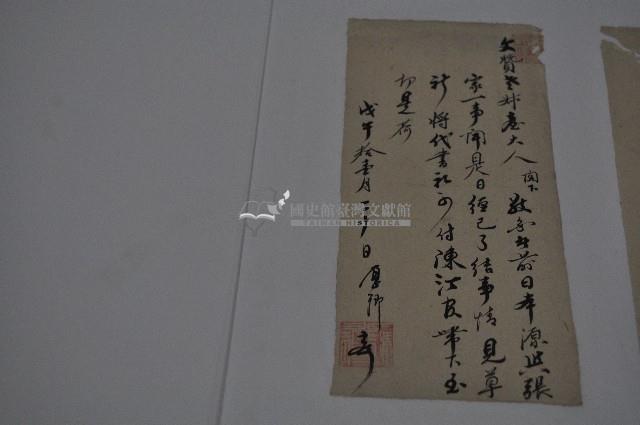 文贊 老姊臺大人 閣下 敬 者前日本源與張
家一事聞是日經已了結事情見草
祈將代書礼 付陳江 帶下至
切是荷
戊午拾壹月 日厚卿
國史館臺灣文獻館
TAIWAN HISTORICA